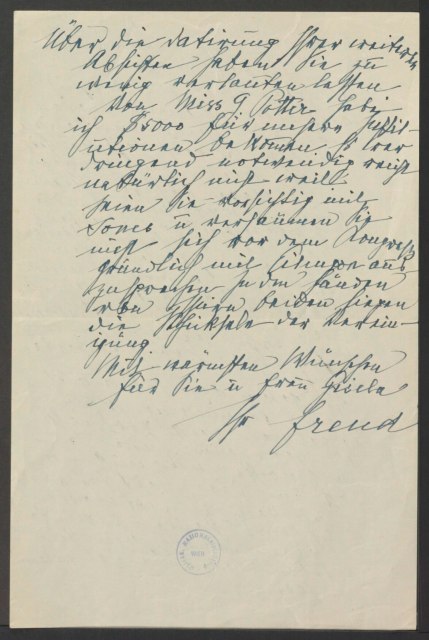 Über die Datirung Ihrer weiteren
Absichten haben Sie zu
wenig verlauten lassen
Von Miss G Potter habe
ich $5000 für unsere Insti-
tutionen bekommen so war
dringend notwendig reicht
natürlich nicht weit.
Seien Sie vorsichtig mit
Jones u versäumen Sie
nicht sich vor dem Kongress
gründlich mit ihm aus
zusprechen In den Händen
von Ihnen beiden liegen
die Schicksale der Verein-
igung
Mit wärmsten Wünschen
für Sie u Frau Gisela
Ihr Freud
NATIONALBIBL
WIEN